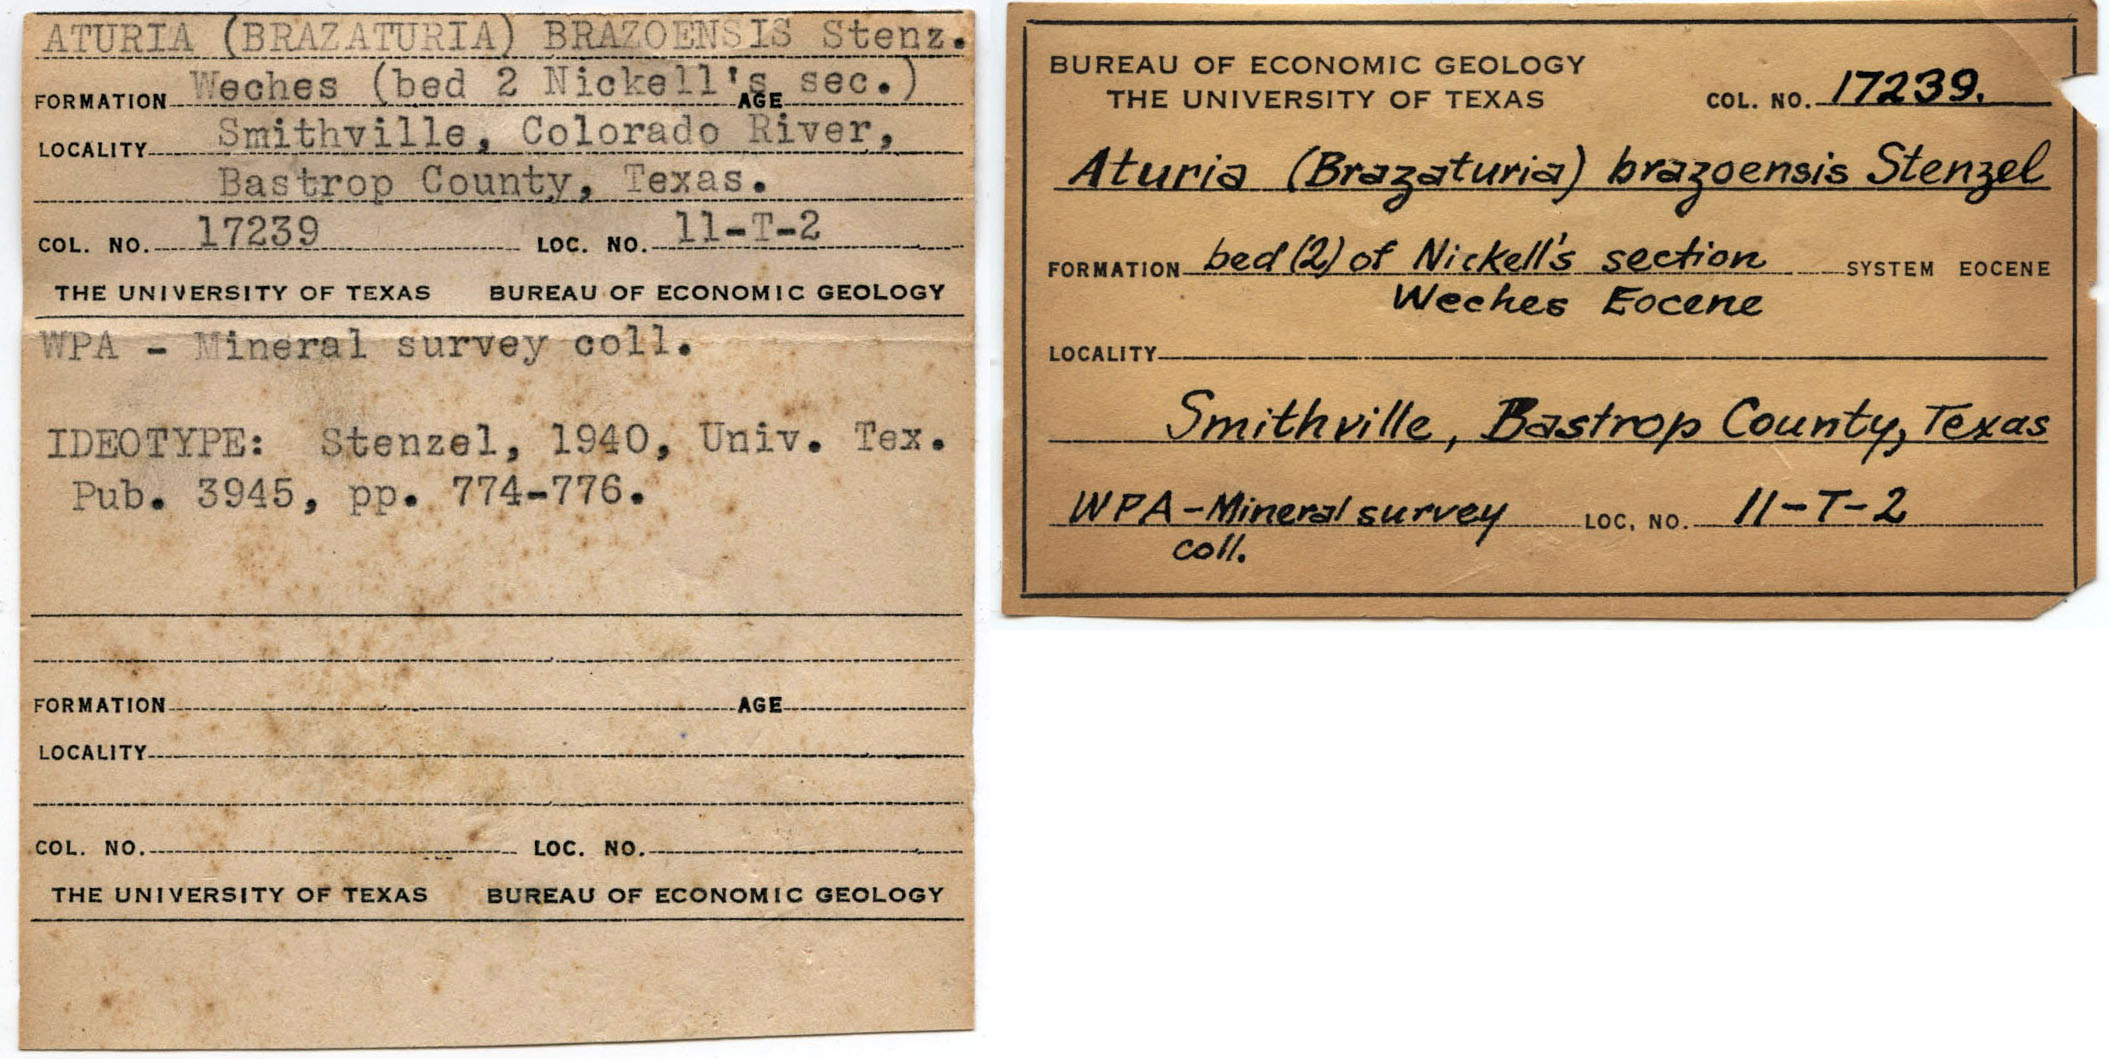 ATURIA (BRAZATURIA) BRAZOENSIS Stenz.
FORMATION Weches (bed 2 Nickell's sec.) AGE
LOCALITY Smithville, Colorado River,
Bastrop County, Texas.
COL. NO. 17239 LOC. NO. 11-T-2
THE UNIVERSITY OF TEXAS BUREAU OF ECONOMIC GEOLOGY
WPA - Mineral survey coll.
IDEOTYPE: Stenzel, 1940, Univ. Tex.
Pub. 3945, pp. 774-776.
FORMATION AGE
LOCALITY
COL. NO. LOC. NO.
THE UNIVERSITY OF TEXAS BUREAU OF ECONOMIC GEOLOGY
BUREAU OF ECONOMIC GEOLOGY
THE UNIVERSITY OF TEXAS COL. NO. 17239.
Aturia (Brazaturia) brazoensis Stenzel
FORMATION bed (2) of Nickell's section SYSTEM EOCENE
Weches Eocene
LOCALITY
Smithville, Bastrop County, Texas
WPA-Mineral survey LOC. NO. 11-T-2
coll.